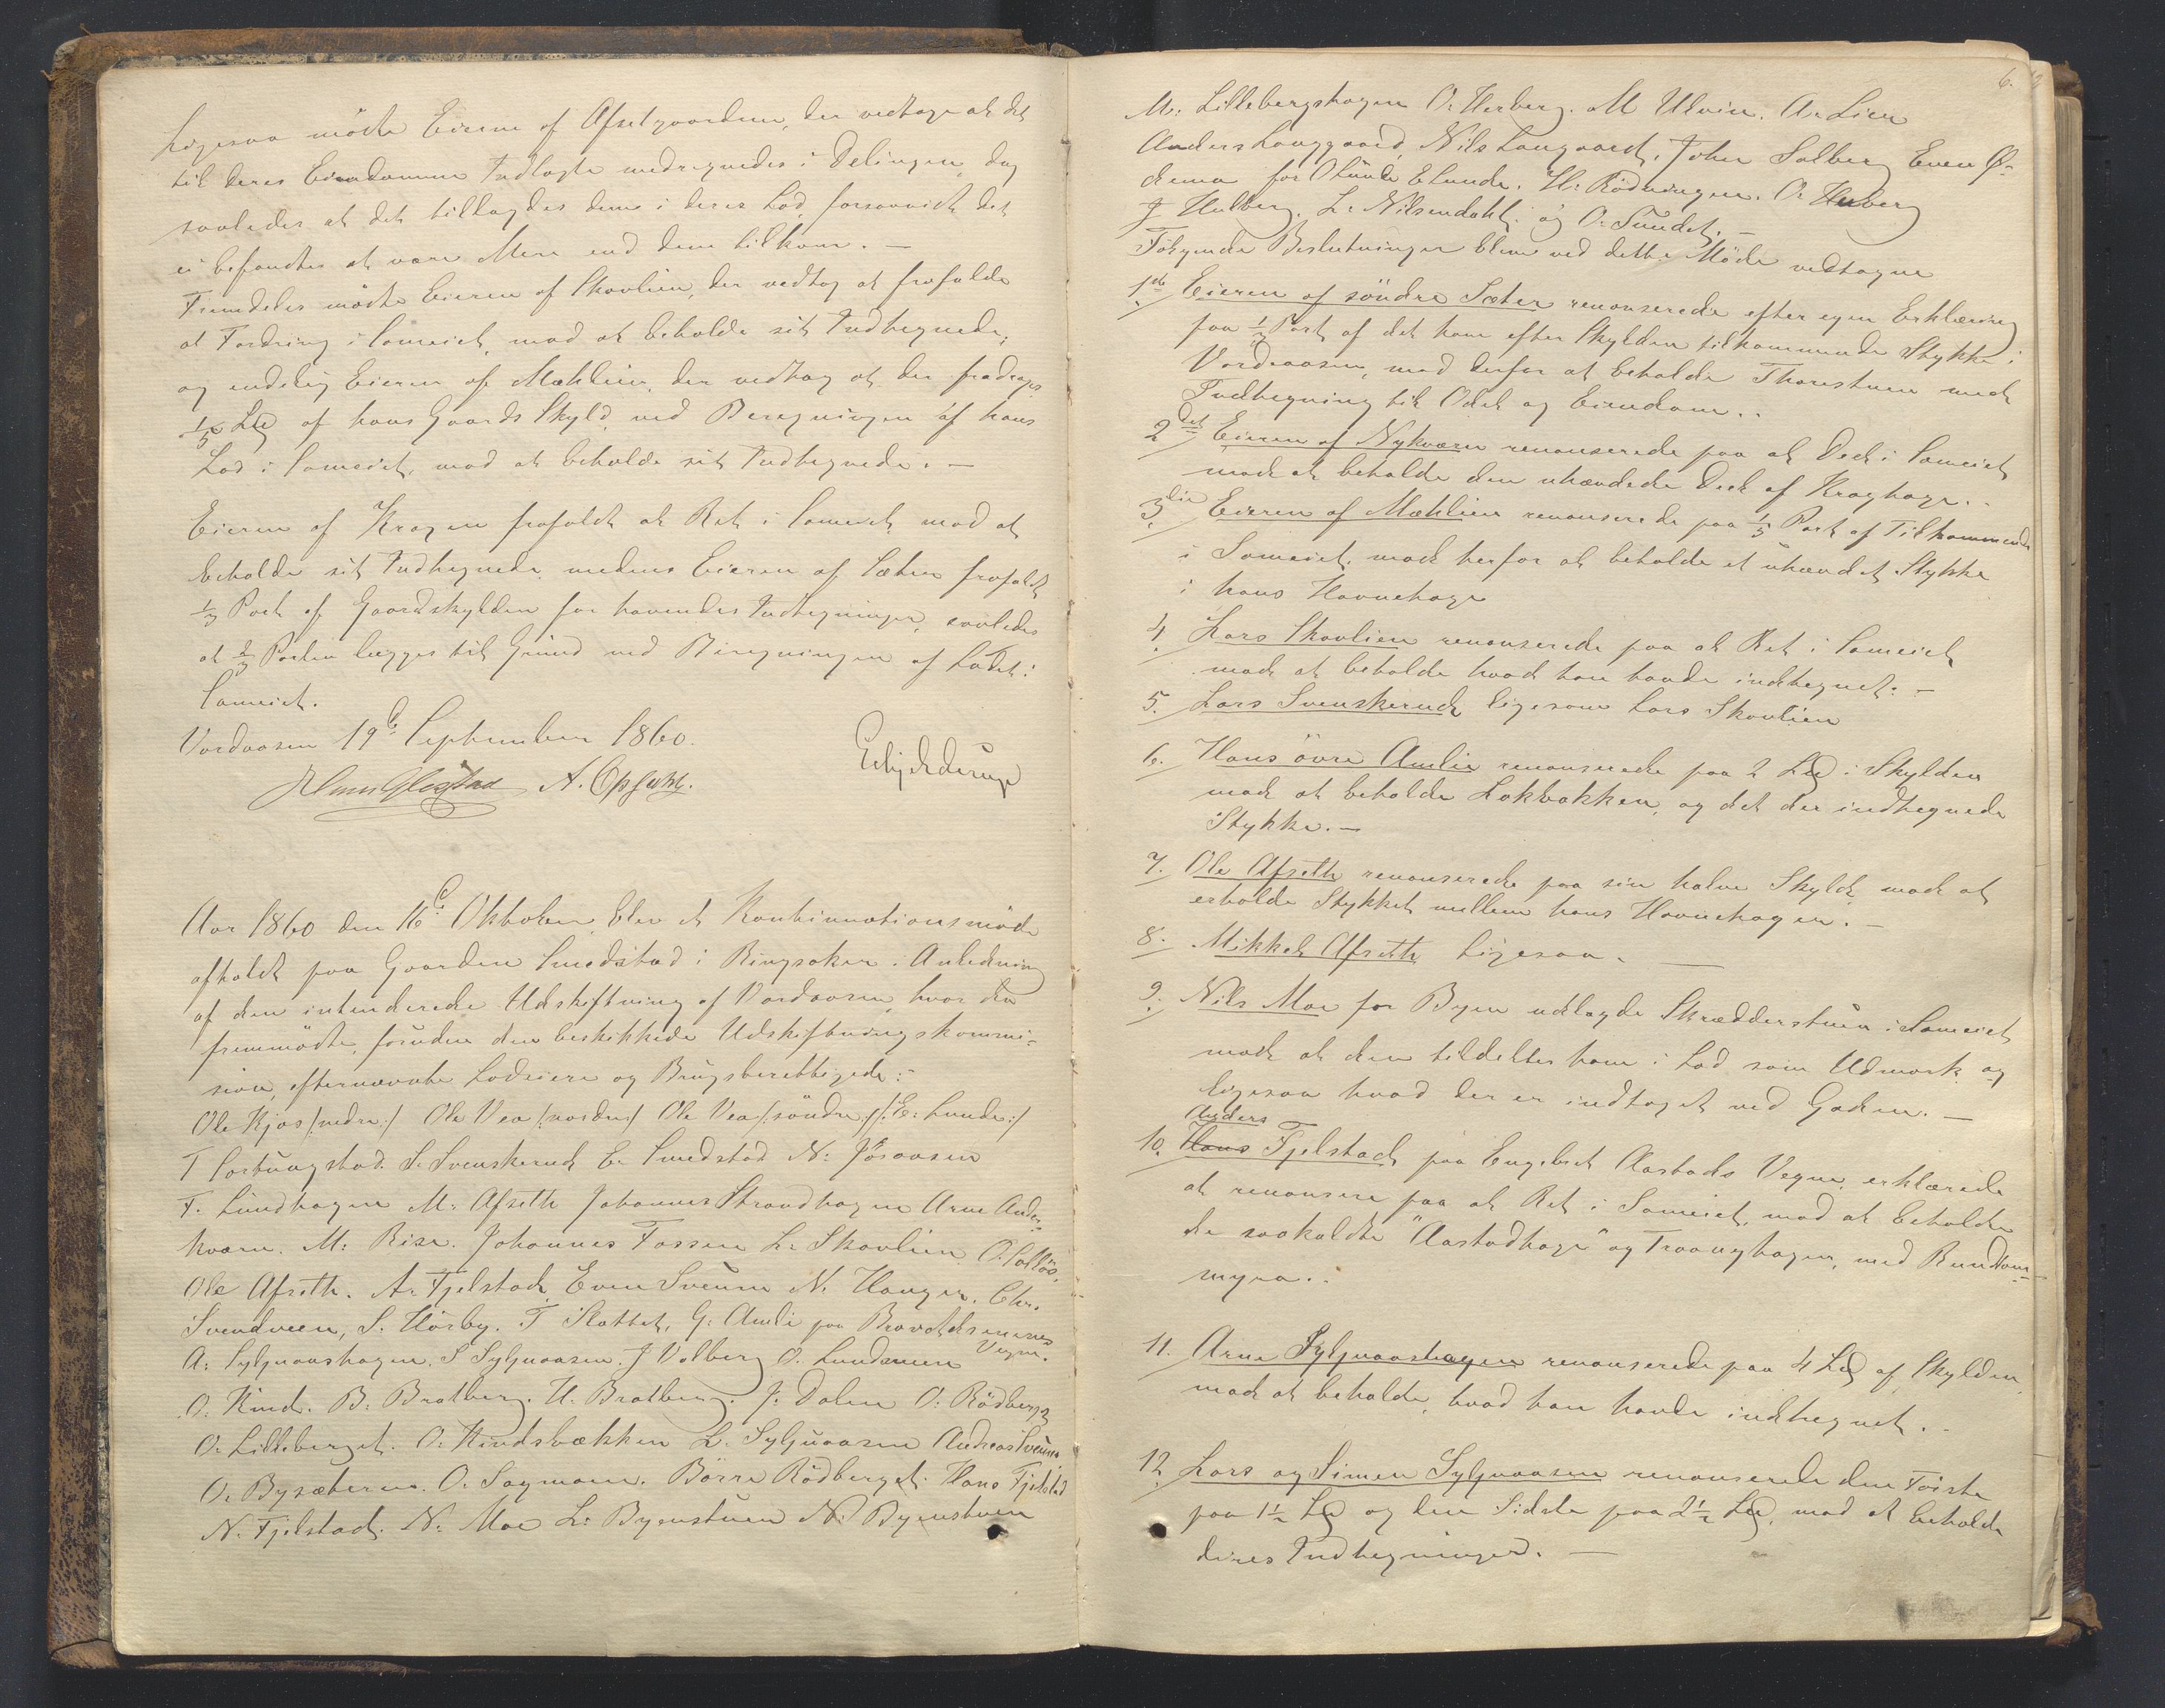 Ligesaa mödte Eierne af Afsetgaardene, der vedtoge at det
til deres Eiendomme Indlagte medregnedes i Delingen, dog
saaledes at det tillagdes dem i deres Lod, forsaavidt det
ei befandtes at være Mere end dem tilkom. —
Fremdeles mödte Eieren af Skovlien, der vedtog at frafalde
al Fordring i Sameiet, mod at beholde sit Indhegnede;
og endelig Eieren af Mæhlien, der vedtog at der fradroges
1/5 af hans Gaards Skyld, ved Beregningen af hans
Lod i Sameiet, mod at beholde sit Indhegnede. —
Eieren af Kragen frafaldt al Ret i Sameiet mod at
beholde sit Indhegnede, medens Eieren af Sæter frafaldt
1/3 Part af Gaardskylden for havendes Indhegninger, saaledes
at 2/3 Parten lægges til Grund ved Beregningen af Lodet i
Sameiet.
Vordaasen 19de September 1860.
A. Opsahl.
Aar 1860 den 16de Oktober blev et Kontinuationsmöde
afholdt paa Gaarden Smedstad i Ringsaker i Anledning
af den intenderede Udskiftning af Vordaasen, hvor da
fremmödte, foruden den beskikkede Udskiftningskommi-
sion, efternævnte Lodeiere og Brugsberettigede:
Ole Kjos /:nedre:/ Ole Vea /:nordre:/ Ole Vea /:söndre:/ /:E: Lunde:/
T S. Svenskerud E. Smedstad N:
F. Lundhagen M: Afseth Johannes Strandhagen Arne Ander-
kværn. M: Rise. Johannes Fossen L: Skovlien
Ole Afseth. A. Fjelstad, Even Sveum N. Haugen. Chr.
Svendveen, S. Hörby. T Slattet, G: Aulie paa
Vegne.
A: Syljuaashagen, S Syljuaasen. J Volberg O. Lundemoen
O. Kind. B: Bratberg. H. Bratberg. J: Dalen O: Rödberget
O. Lilleberget. O: Kindsbækken L. Syljuaasen Andreas Sveum
O. Bysæteren. O. Sagmoen. Börre Rödberget. Hans Fjelstad
N. Fjelstad. N: Moe L: Byenstuen N. Byenstuen
6.
M: Lillebergshagen O: Herberg. M Ulven. A. Lien
Anders Langgaard, Nils Langaard, John Solberg Even Ö-
demo for O Lunde E Lunde. H: Rödningen. O: Herberg
J Hulberg. L: Nilsendahl. og O. Sundet. —
Fölgende Beslutninger bleve ved dette Möde vedtagne
1ste Eieren af söndre Sæter renonserede efter egen Erklæring
paa 1/3 Part af det ham efter Skylden tilkommende Stykke i
Vordaasen, mod derfor at beholde Thorestuen med
Indhegning til Odel og Eiendom. .
2det Eieren af Nykværn renonserede paa al Deel i Sameiet
mod at beholde den uhævdede Deel af Kraghage. .
3die Eieren af Mæhlien renonserede paa 1/5 Part af Tilkommende
i Sameiet, mod herfor at beholde et uhævdet Stykke
i hans Havnehage
4. Lars Skovlien renonserede paa al Ret i Sameiet
mod at beholde hvad han havde indhegnet: —
5. Lars Svenskerud ligesom Lars Skovlien
6. Hans övre Aulie renonserede paa 2 i Skylden
mod at beholde Lokbakken, og det der indhegnede
Stykke. —
7. Ole Afseth renonserede paa sin halve Skyld mod at
erholde Stykket mellem hans Havnehager. —
8. Mikkel Afseth ligesaa. —
9. Nils Moe for Byen udlagde Skrædderstuen i Sameiet
mod at den tildeltes ham i Lod som Udmark og
ligesaa hvad der er indtaget ved Gaden. —
Anders
10. Hans Fjelstad paa Engebret Aastads Vegne, erklærede
at renonsere paa al Ret i Sameiet, mod at beholde
de saakaldte "Aastadhage" og Traanghagen, med Rundtom-
myra. .
11. Arne Syljuaashagen renonserede paa 4 af Skylden,
mod at beholde, hvad han havde indhegnet. .
12. Lars og Simen Syljuaasen renonserede den Förste
paa 1 1/2 og den Sidste paa 2 1/2, mod at beholde
deres Indhegninger. —